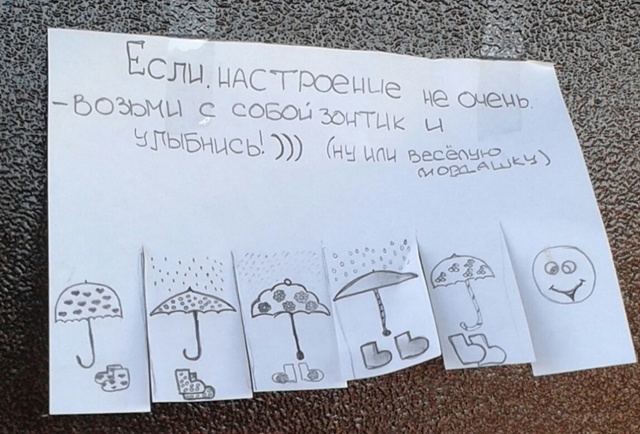 Если, настроение не очень.
- возьми с собой зонтик и
улыбнись!))) (ну или весёлую
мордашку)